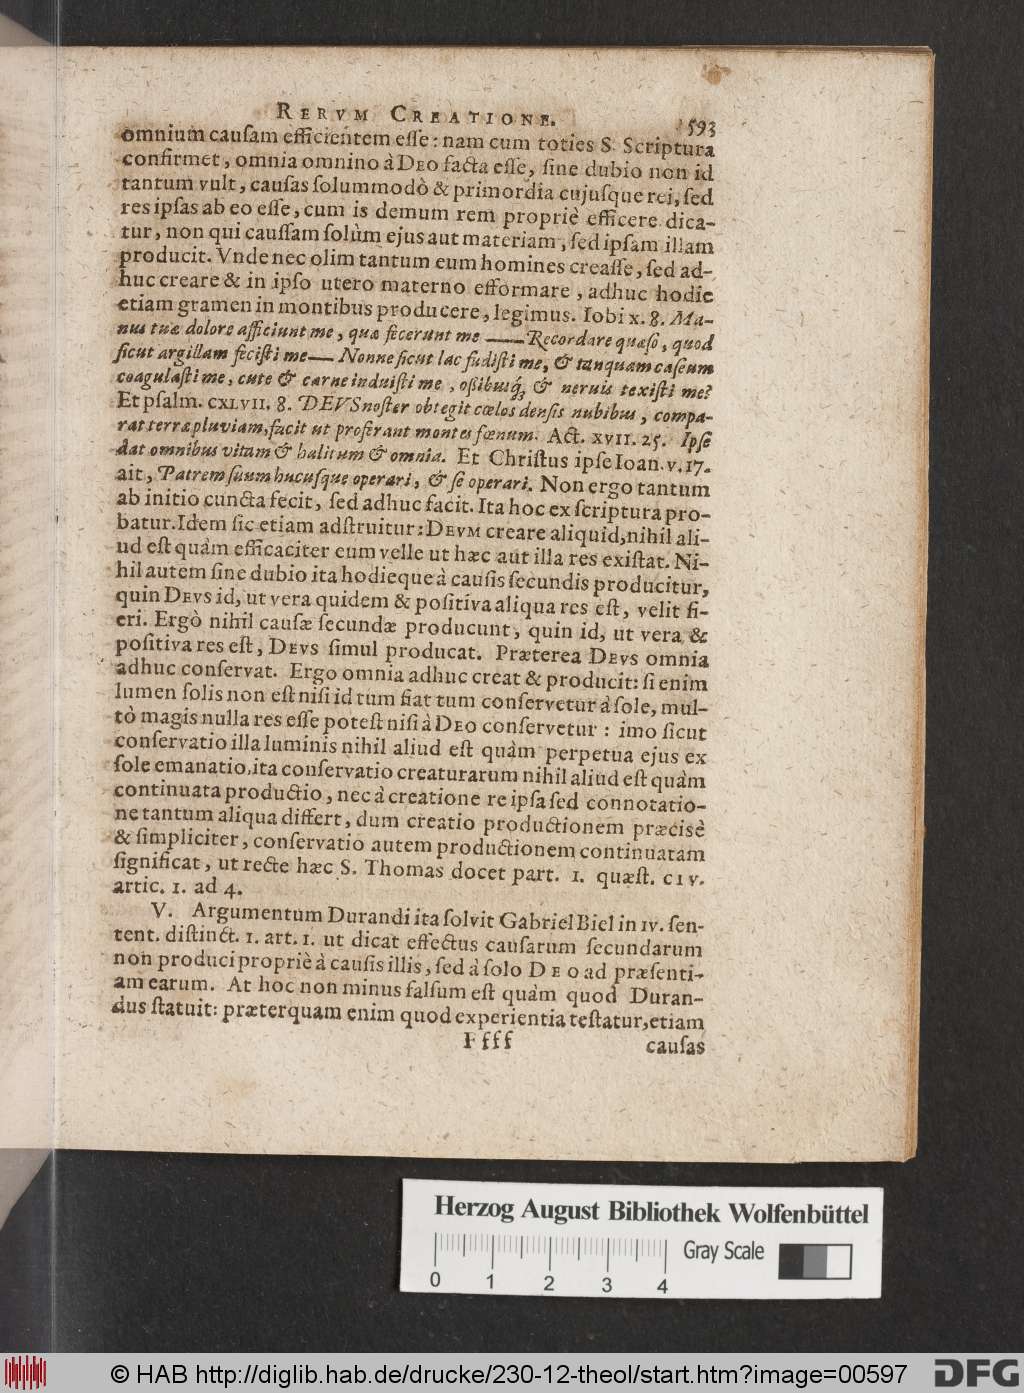 RERVM CREATIONE. 593
omnium cauſam efficientem eſſe: nam cum toties S. Scriptura
confirmet, omnia omnino à DEO facta eſſe, ſine dubio non id
tantum vult, cauſas ſolummodò & primordia cujuſque rei, ſed
res ipſas ab eo eſſe, cum is demum rem propriè efficere dica-
tur, non qui cauſſam ſolùm ejus aut materiam, ſed ipſam illam
producit. Vnde nec olim tantum eum homines creaſſe, ſed ad-
huc creare & in ipſo utero materno efformare, adhuc hodie
etiam gramen in montibus producere, legimus. Iobi x. 8. Ma-
nus tuæ dolore afficiunt me, quæ fecerunt me —— Recordare quæſo, quod
ſicut argillam feciſti me— Nonne ſicut lac fudiſti me, & tanquam caſeum
coagulaſti me, cute & carne induiſti me, oßibusq́; & neruis texiſti me?
Et pſalm. CXLVII. 8. DEVS noſter obtegit cœlos denſis nubibus, compa-
rat terræ pluviam, facit ut proferant montes fœnum. Act. XVII. 25. Ipſe
dat omnibus vitam & halitum & omnia. Et Chriſtus ipſe Ioan. v. 17.
ait, Patrem ſuum hucuſque operari, & ſe operari. Non ergo tantum
ab initio cuncta fecit, ſed adhuc facit. Ita hoc ex ſcriptura pro-
batur. Idem ſic etiam adſtruitur: DEVM creare aliquid, nihil ali-
ud eſt quàm efficaciter eum velle ut hæc aut illa res exiſtat. Ni-
hil autem ſine dubio ita hodieque à cauſis ſecundis producitur,
quin DEVS id, ut vera quidem & poſitiva aliqua res eſt, velit fi-
eri. Ergò nihil cauſæ ſecundæ producunt, quin id, ut vera &
poſitiva res eſt, DEVS ſimul producat. Præterea DEVS omnia
adhuc conſervat. Ergo omnia adhuc creat & producit: ſi enim
lumen ſolis non eſt niſi id tum fiat tum conſervetur à ſole, mul-
tò magis nulla res eſſe poteſt niſi à DEO conſervetur: imo ſicut
conſervatio illa luminis nihil aliud eſt quàm perpetua ejus ex
ſole emanatio, ita conſervatio creaturarum nihil aliud eſt quàm
continuata productio, nec à creatione re ipſa ſed connotatio-
ne tantum aliqua differt, dum creatio productionem præcisè
& ſimpliciter, conſervatio autem productionem continuatam
ſignificat, ut recte hæc S. Thomas docet part. 1. quæſt. CIV.
artic. 1. ad 4.
V. Argumentum Durandi ita ſolvit Gabriel Biel in IV. ſen-
tent. diſtinct. 1. art. 1. ut dicat effectus cauſarum ſecundarum
non produci propriè à cauſis illis, ſed à ſolo DEO ad præſenti-
am earum. At hoc non minus falſum eſt quàm quod Duran-
dus ſtatuit: præterquam enim quod experientia teſtatur, etiam
Ffff cauſas
Herzog August Bibliothek Wolfenbüttel
Gray Scale
0 1 2 3 4
© HAB http://diglib.hab.de/drucke/230-12-theol/start.htm?image=00597 DFG